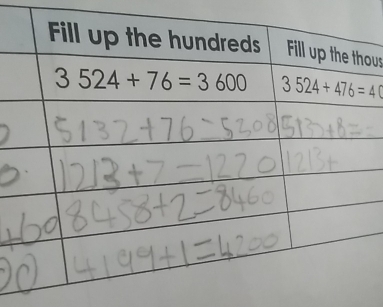 Fill up the hundreds Fill up the thous
3 524 + 76 = 3 600 3 524 + 476 = 4 0
5132+76=5208 513+8=
1213+7=1220 1213+
460 8458+2=8460
00 4199+1=4200